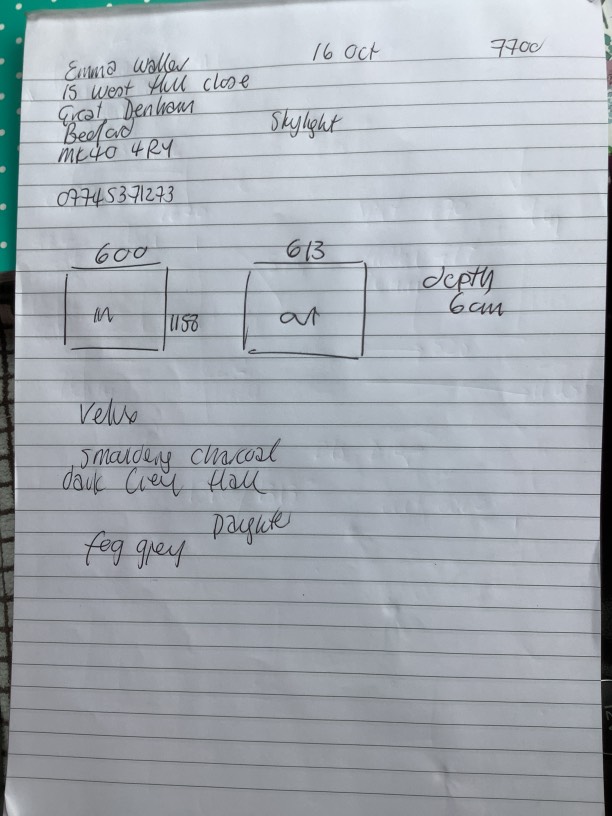 16 Oct
7700
Emma Waller
15 West Hill close
Great Denham
Bedford
MK40 4RY
Skylight
07745371273
600
613
depth
6cm
in
1158
out
Velux
smouldering charcoal
dark Grey Hall
fog grey